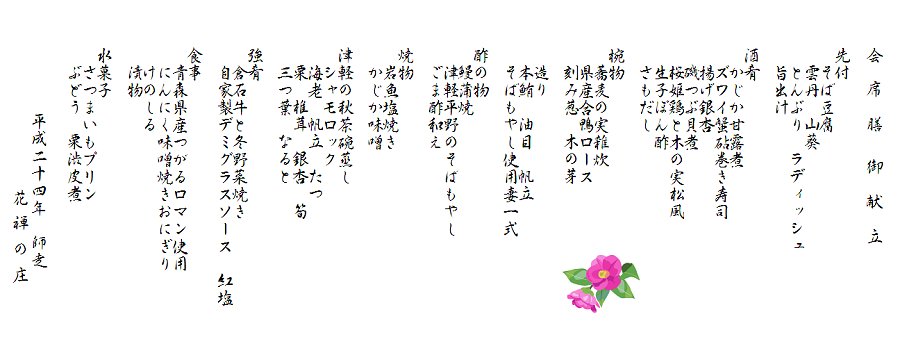 会席膳 御献立
先付
そば豆腐
雲丹 山葵
とんぶり ラディッシュ
旨出汁
酒肴
かじか甘露煮
ズワイ蟹砧巻き寿司
揚げ銀杏
磯つぶ貝煮
桜姫鶏と木の実松風
生子ぽん酢
さもだし
椀物
蕎麦の実雑炊
県産合鴨ロース
刻み葱 木の芽
造り
本鮪 油目 帆立
そばもやし使用妻一式
酢の物
鰻蒲焼
津軽平野のそばもやし
ごま酢和え
焼物
岩魚塩焼き
かじか味噌
津軽の秋茶碗蒸し
シャモロック
海老 帆立 たつ
栗 椎茸 銀杏 筍
三つ葉 なると
強肴
倉石牛と冬野菜焼き
自家製デミグラスソース 紅塩
食事
青森県産つがるロマン使用
にんにく味噌焼きおにぎり
けのしる
漬物
水菓子
さつまいもプリン
ぶどう 栗渋皮煮
平成二十四年 師走
花禅の庄